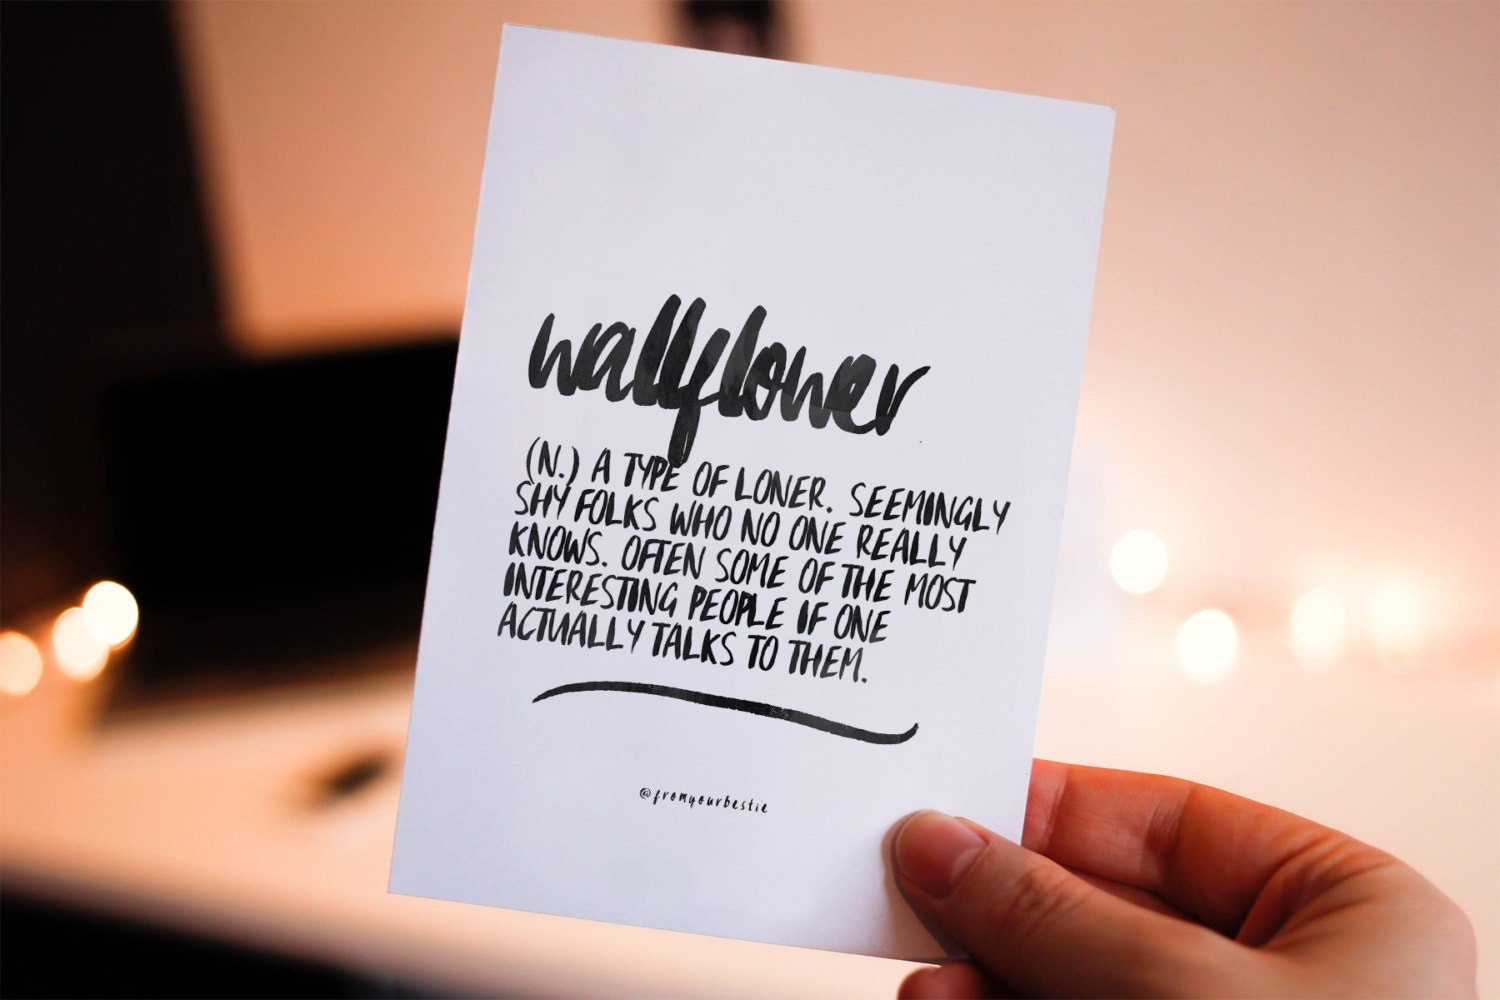 wallflower
(N.) A TYPE OF LONER. SEEMINGLY
SHY FOLKS WHO NO ONE REALLY
KNOWS. OFTEN SOME OF THE MOST
INTERESTING PEOPLE IF ONE
ACTUALLY TALKS TO THEM.
@fromyourbestie